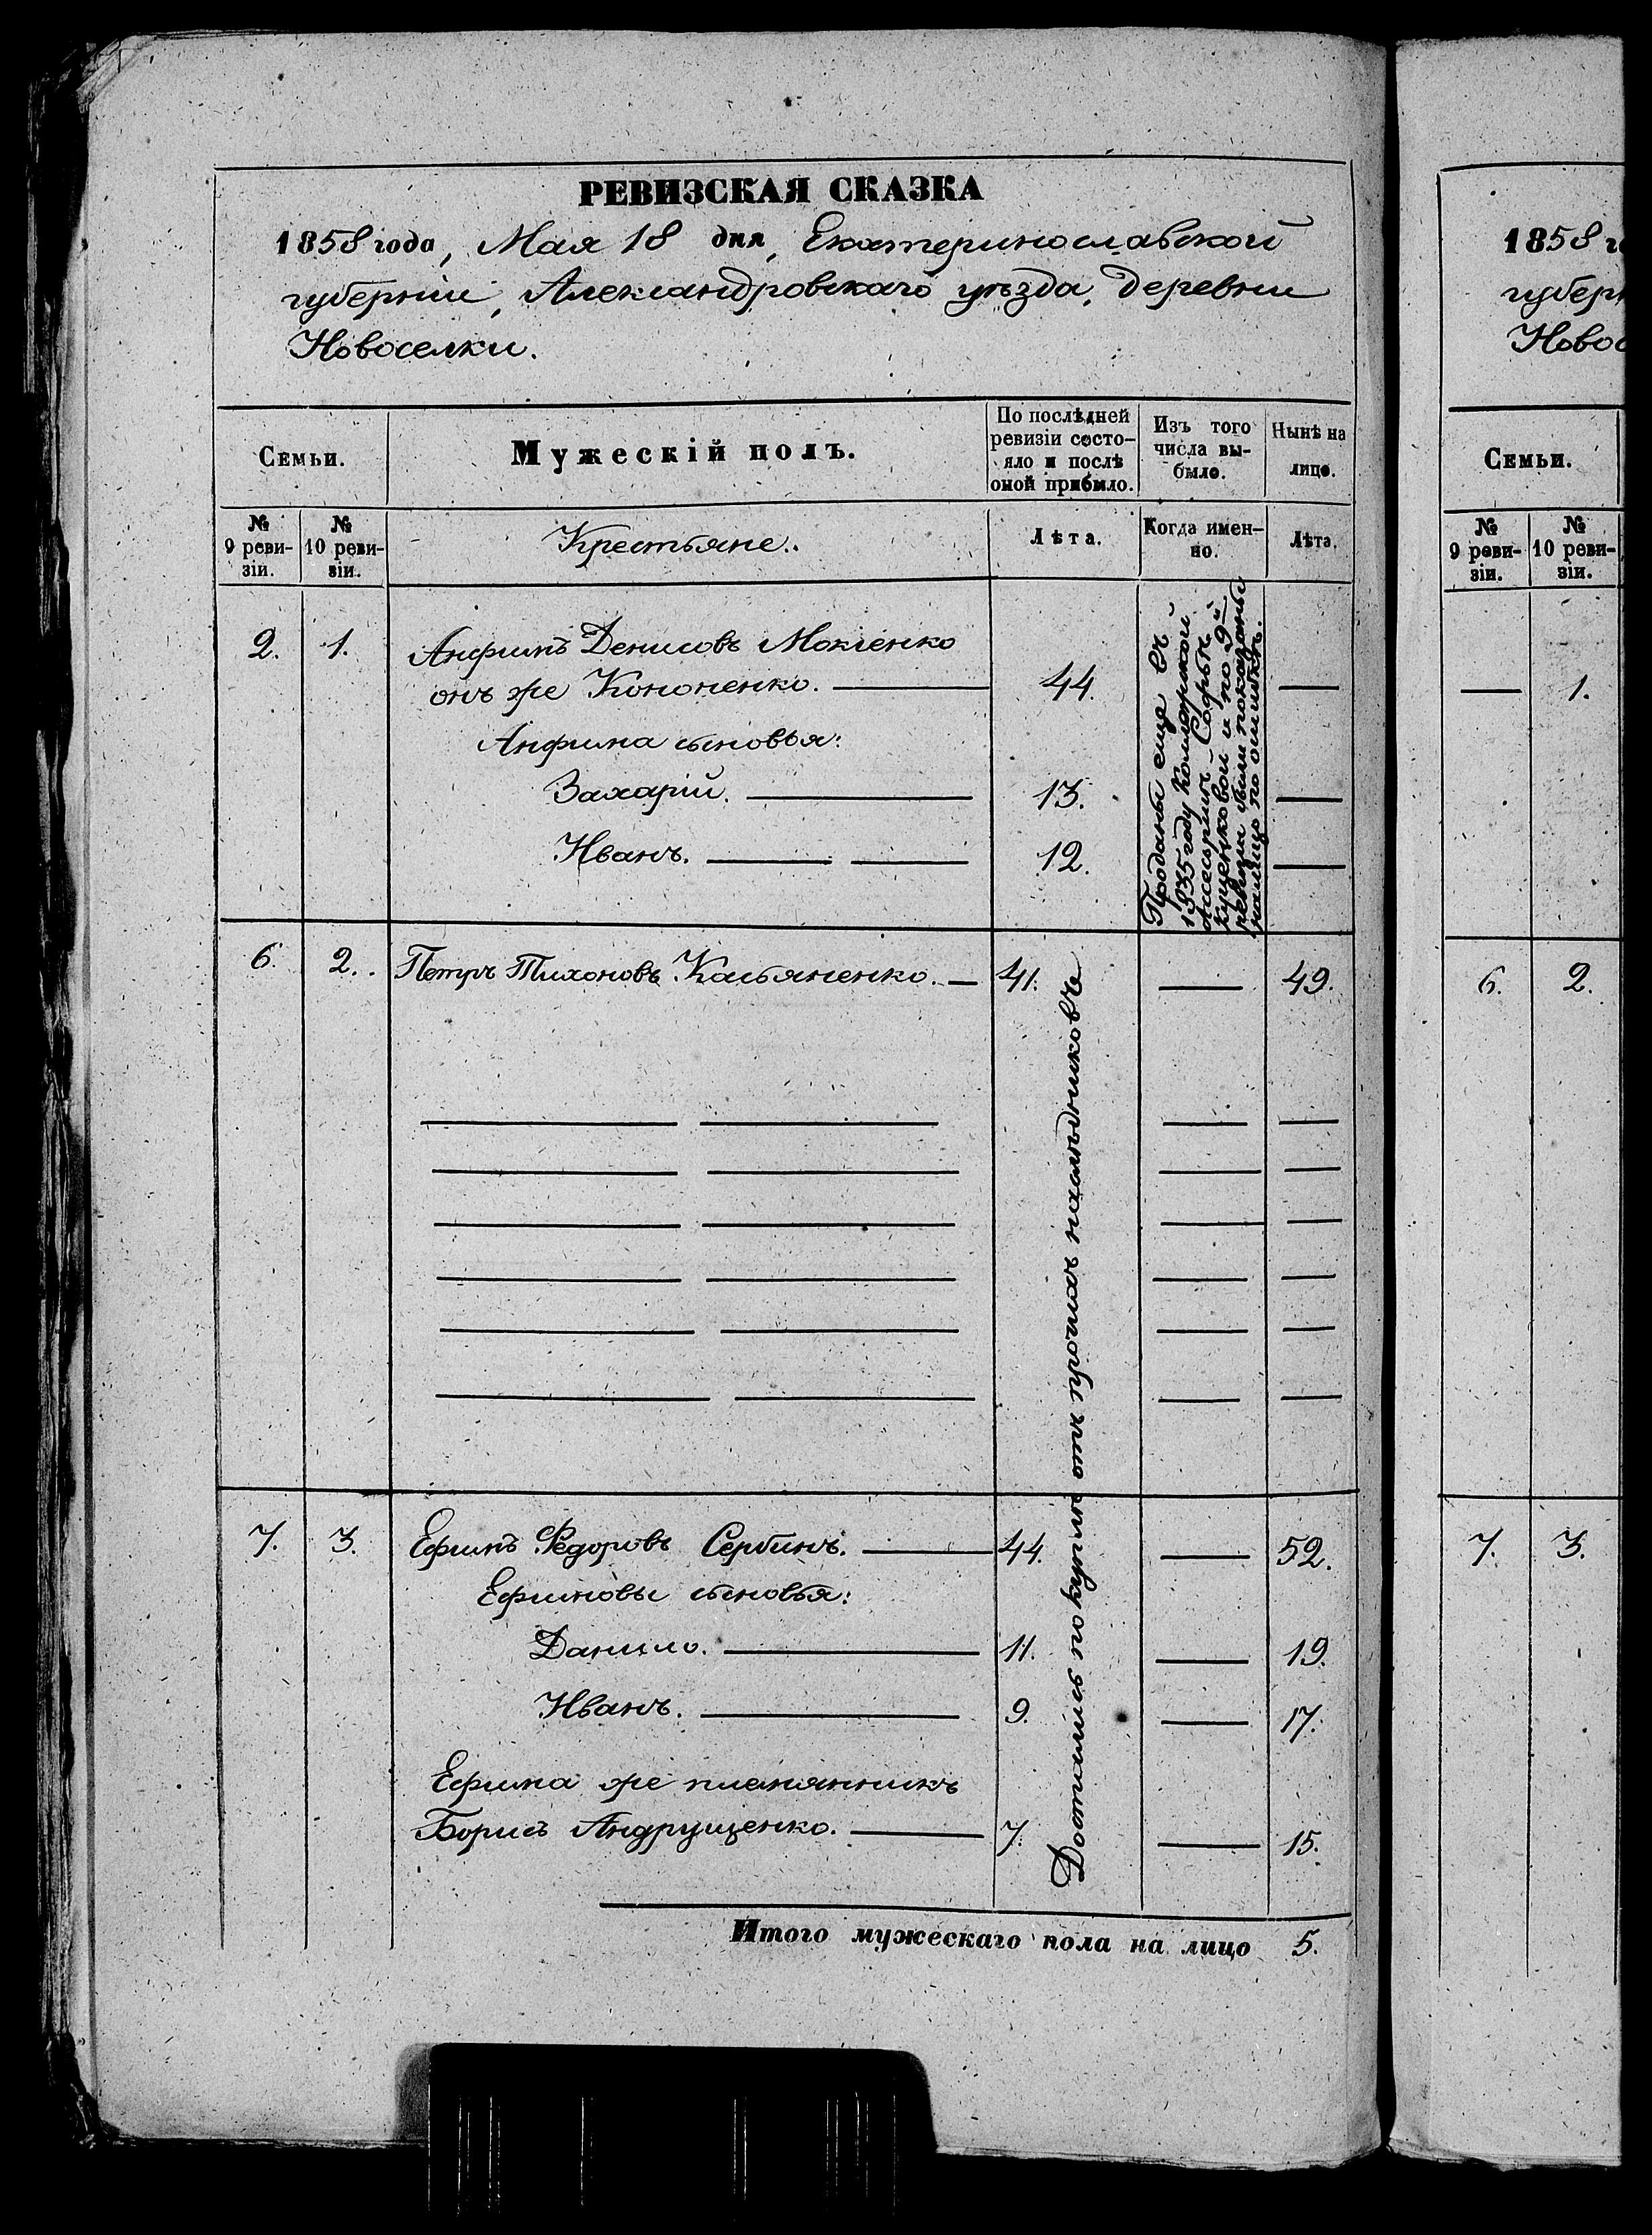 РЕВИЗСКАЯ СКАЗКА
1858 года, Мая 18 дня, Екатеринославской
губерніи, Александровскаго уѣзда, деревни
Новоселки.
Семьи.
Мужескій полъ.
По послѣдней
ревизіи состо-
яло и послѣ
оной прибыло.
Изъ того
числа вы-
было.
Нынѣ на
лицо.
№
9 реви-
зіи.
№
10 реви-
зіи.
Крестьяне.
Лѣта.
Когда имен-
но.
Лѣта.
2. 1. Анфимъ Денисовъ Мокіенко
онъ же Кононенко. — 44. —
Анфима сыновья:
Захарій. — 13. —
Иванъ. — — 12. —
Проданы еще въ
1835 году Коллежской
Ассесоршѣ Софьѣ
Куценковой и по 9й
ревизіи были показаны
налицо по ошибкѣ.
6. 2. Петръ Тихоновъ Касьяненко. — 41. — 49.
7. 3. Ефимъ Федоровъ Сербинъ. — 44. — 52.
Ефимовы сыновья:
Данило. — 11. — 19.
Иванъ. — 9. — 17.
Ефима же племянникъ
Борисъ Андрущенко. — 7. — 15.
Достались по купли отъ прочихъ наслѣдниковъ
Итого мужескаго пола на лицо 5.
1858
губер
Ново
Семьи.
№
9 реви-
зіи.
№
10 реви-
зіи.
— 1.
6. 2.
7. 3.